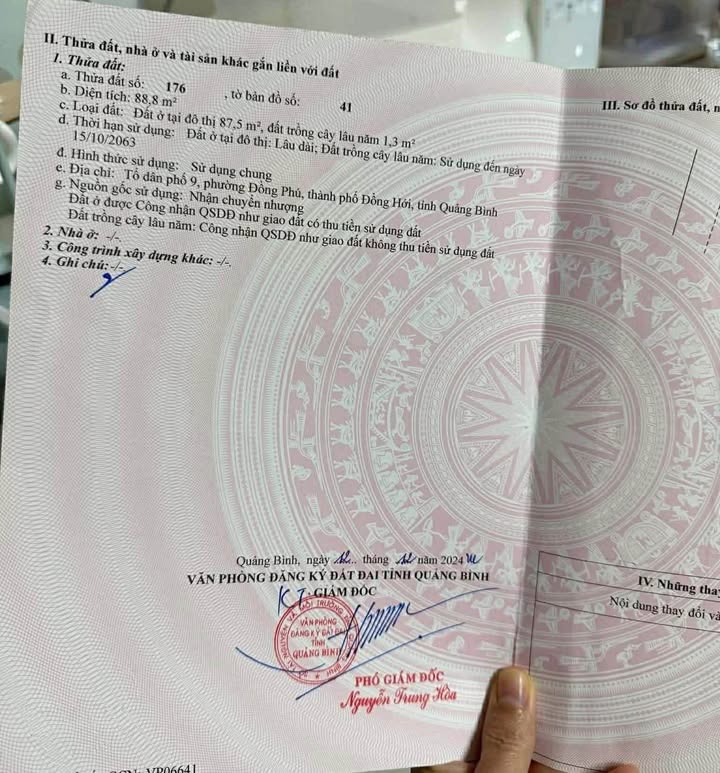 II. Thửa đất, nhà ở và tài sản khác gắn liền với đất
1. Thửa đất:
a. Thửa đất số: 176 , tờ bản đồ số: 41
b. Diện tích: 88,8 m²
c. Loại đất: Đất ở tại đô thị 87,5 m², đất trồng cây lâu năm 1,3 m²
d. Thời hạn sử dụng: Đất ở tại đô thị: Lâu dài; Đất trồng cây lâu năm: Sử dụng đến ngày
15/10/2063
đ. Hình thức sử dụng: Sử dụng chung
e. Địa chỉ: Tổ dân phố 9, phường Đồng Phú, thành phố Đồng Hới, tỉnh Quảng Bình
g. Nguồn gốc sử dụng: Nhận chuyển nhượng
Đất ở được Công nhận QSDĐ như giao đất có thu tiền sử dụng đất
Đất trồng cây lâu năm: Công nhận QSDĐ như giao đất không thu tiền sử dụng đất
2. Nhà ở: -/-.
3. Công trình xây dựng khác: -/-.
4. Ghi chú: -/-.
III. Sơ đồ thửa đất, n
Quảng Bình, ngày 12 tháng 12 năm 2024
VĂN PHÒNG ĐĂNG KÝ ĐẤT ĐAI TỈNH QUẢNG BÌNH
KT. GIÁM ĐỐC
VĂN PHÒNG
ĐĂNG KÝ ĐẤT ĐAI
TỈNH
QUẢNG BÌNH
PHÓ GIÁM ĐỐC
Nguyễn Trung Hòa
IV. Những thay
Nội dung thay đổi và
VP06641